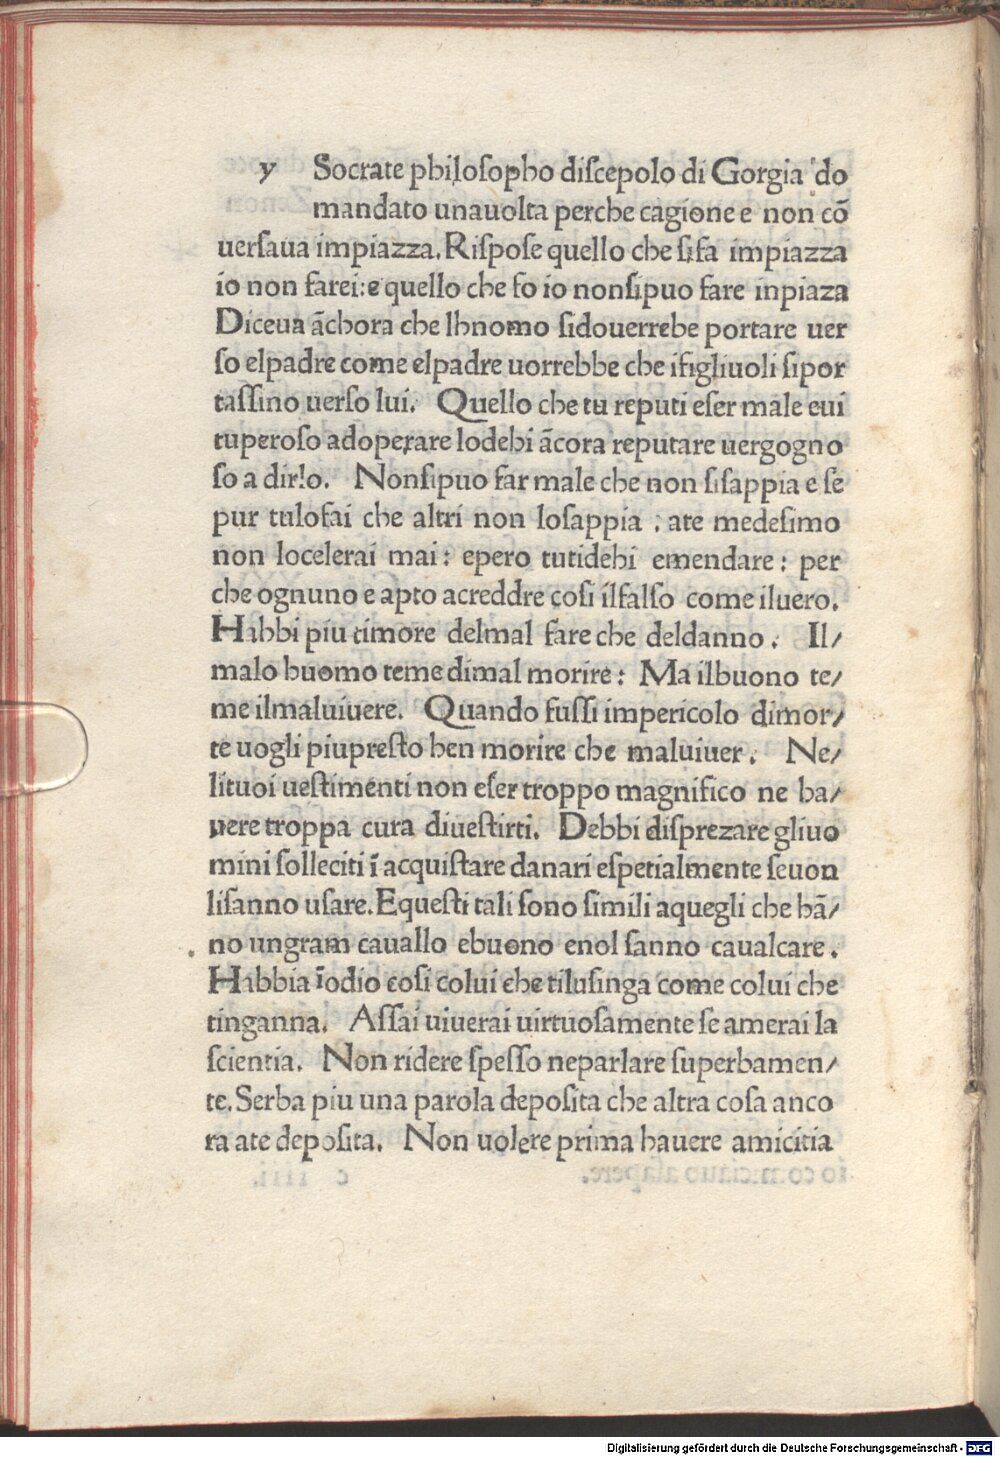 y Socrate philosopho discepolo di Gorgia do
mandato unauolta perche cagione e non cō
uersaua impiazza. Rispose quello che sifa impiazza
io non farei: e quello che fo io nonsipuo fare inpiaza
Diceua āchora che lhnomo sidouerrebe portare uer
so elpadre come elpadre uorrebbe che ifigliuoli sipor
tassino uerso lui. Quello che tu reputi eser male eui
tuperoso adoperare lodebi ācora reputare uergogno
so a dirlo. Nonsipuo far male che non sisappia e se
pur tulofai che altri non losappia : ate medesimo
non locelerai mai: epero tutidebi emendare: per
che ognuno e apto acreddre cosi ilfalso come iluero.
Habbi piu timore delmal fare che deldanno. Il/
malo huomo teme dimal morire: Ma ilbuono te/
me ilmaluiuere. Quando fussi impericolo dimor/
te uogli piupresto ben morire che maluiuer. Ne/
lituoi uestimenti non eser troppo magnifico ne ha/
uere troppa cura diuestirti. Debbi disprezare gliuo
mini solleciti ī acquistare danari espetialmente seuon
lisanno usare. Equesti tali sono simili aquegli che hā/
no ungram cauallo ebuono enol sanno caualcare.
Habbia īodio cosi colui che tilusinga come colui che
tinganna. Assai uiuerai uirtuosamente se amerai la
scientia. Non ridere spesso neparlare superbamen/
te. Serba piu una parola deposita che altra cosa anco
ra ate deposita. Non uolere prima hauere amicitia
Digitalisierung gefördert durch die Deutsche Forschungsgemeinschaft - DFG